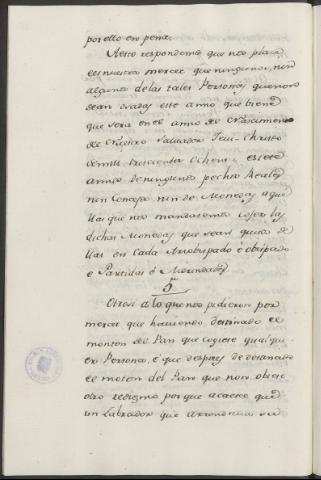 por ello en pena.
A esto respondemos que nos place
es nuestra merced que ningunos, nin
algunos de las tales Personas que non
sean osadas este anno que biene
que sera en el anno de Nascimiento
de Nuestro Salvador Jesu-Christo
de mill trescientos Ochenta
de ningunos pechos Reales
nin Concejo nin de Monedas aque
llas que nos mandaremos cojer las
dichas Monedas que sean quitas de
llas en cada Arzobispado é obispado
e Partidas é Merindades
5.
Otrosi a lo que nos pidieron por
merced que haviendo dezmado el
monton del Pan que cogiere qual qui
er Persona, e que despues de dezmado
el monton del Pan que non obiese
otro redezmo porque acaesce que
un Labrador que